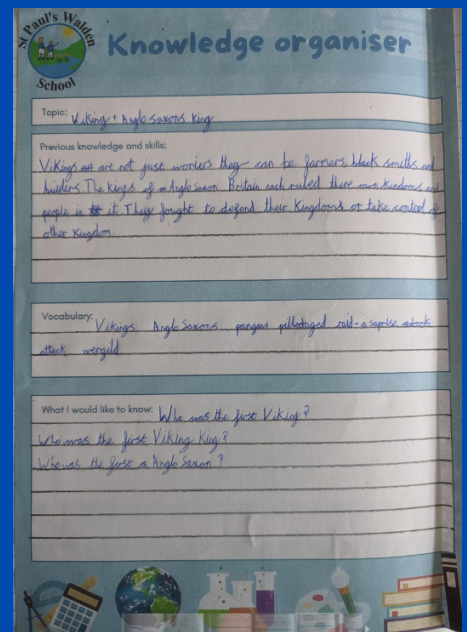 St Paul's Walden
School
Knowledge organiser
Topic: Viking + Anglo Saxons King
Previous knowledge and skills:
Vikings are not just worriers they can be farmers, black smiths and
builders. The Kings of Anglo Saxon Britain each ruled there own kindoms and
people in it. They fought to defend their Kingdoms or take control of
other Kingdom
Vocabulary: Vikings Anglo Saxons pangans raid - a suprise
attack wergild
What I would like to know: Who was the first Viking?
Who was the first Viking King?
Who was the first Anglo Saxon?